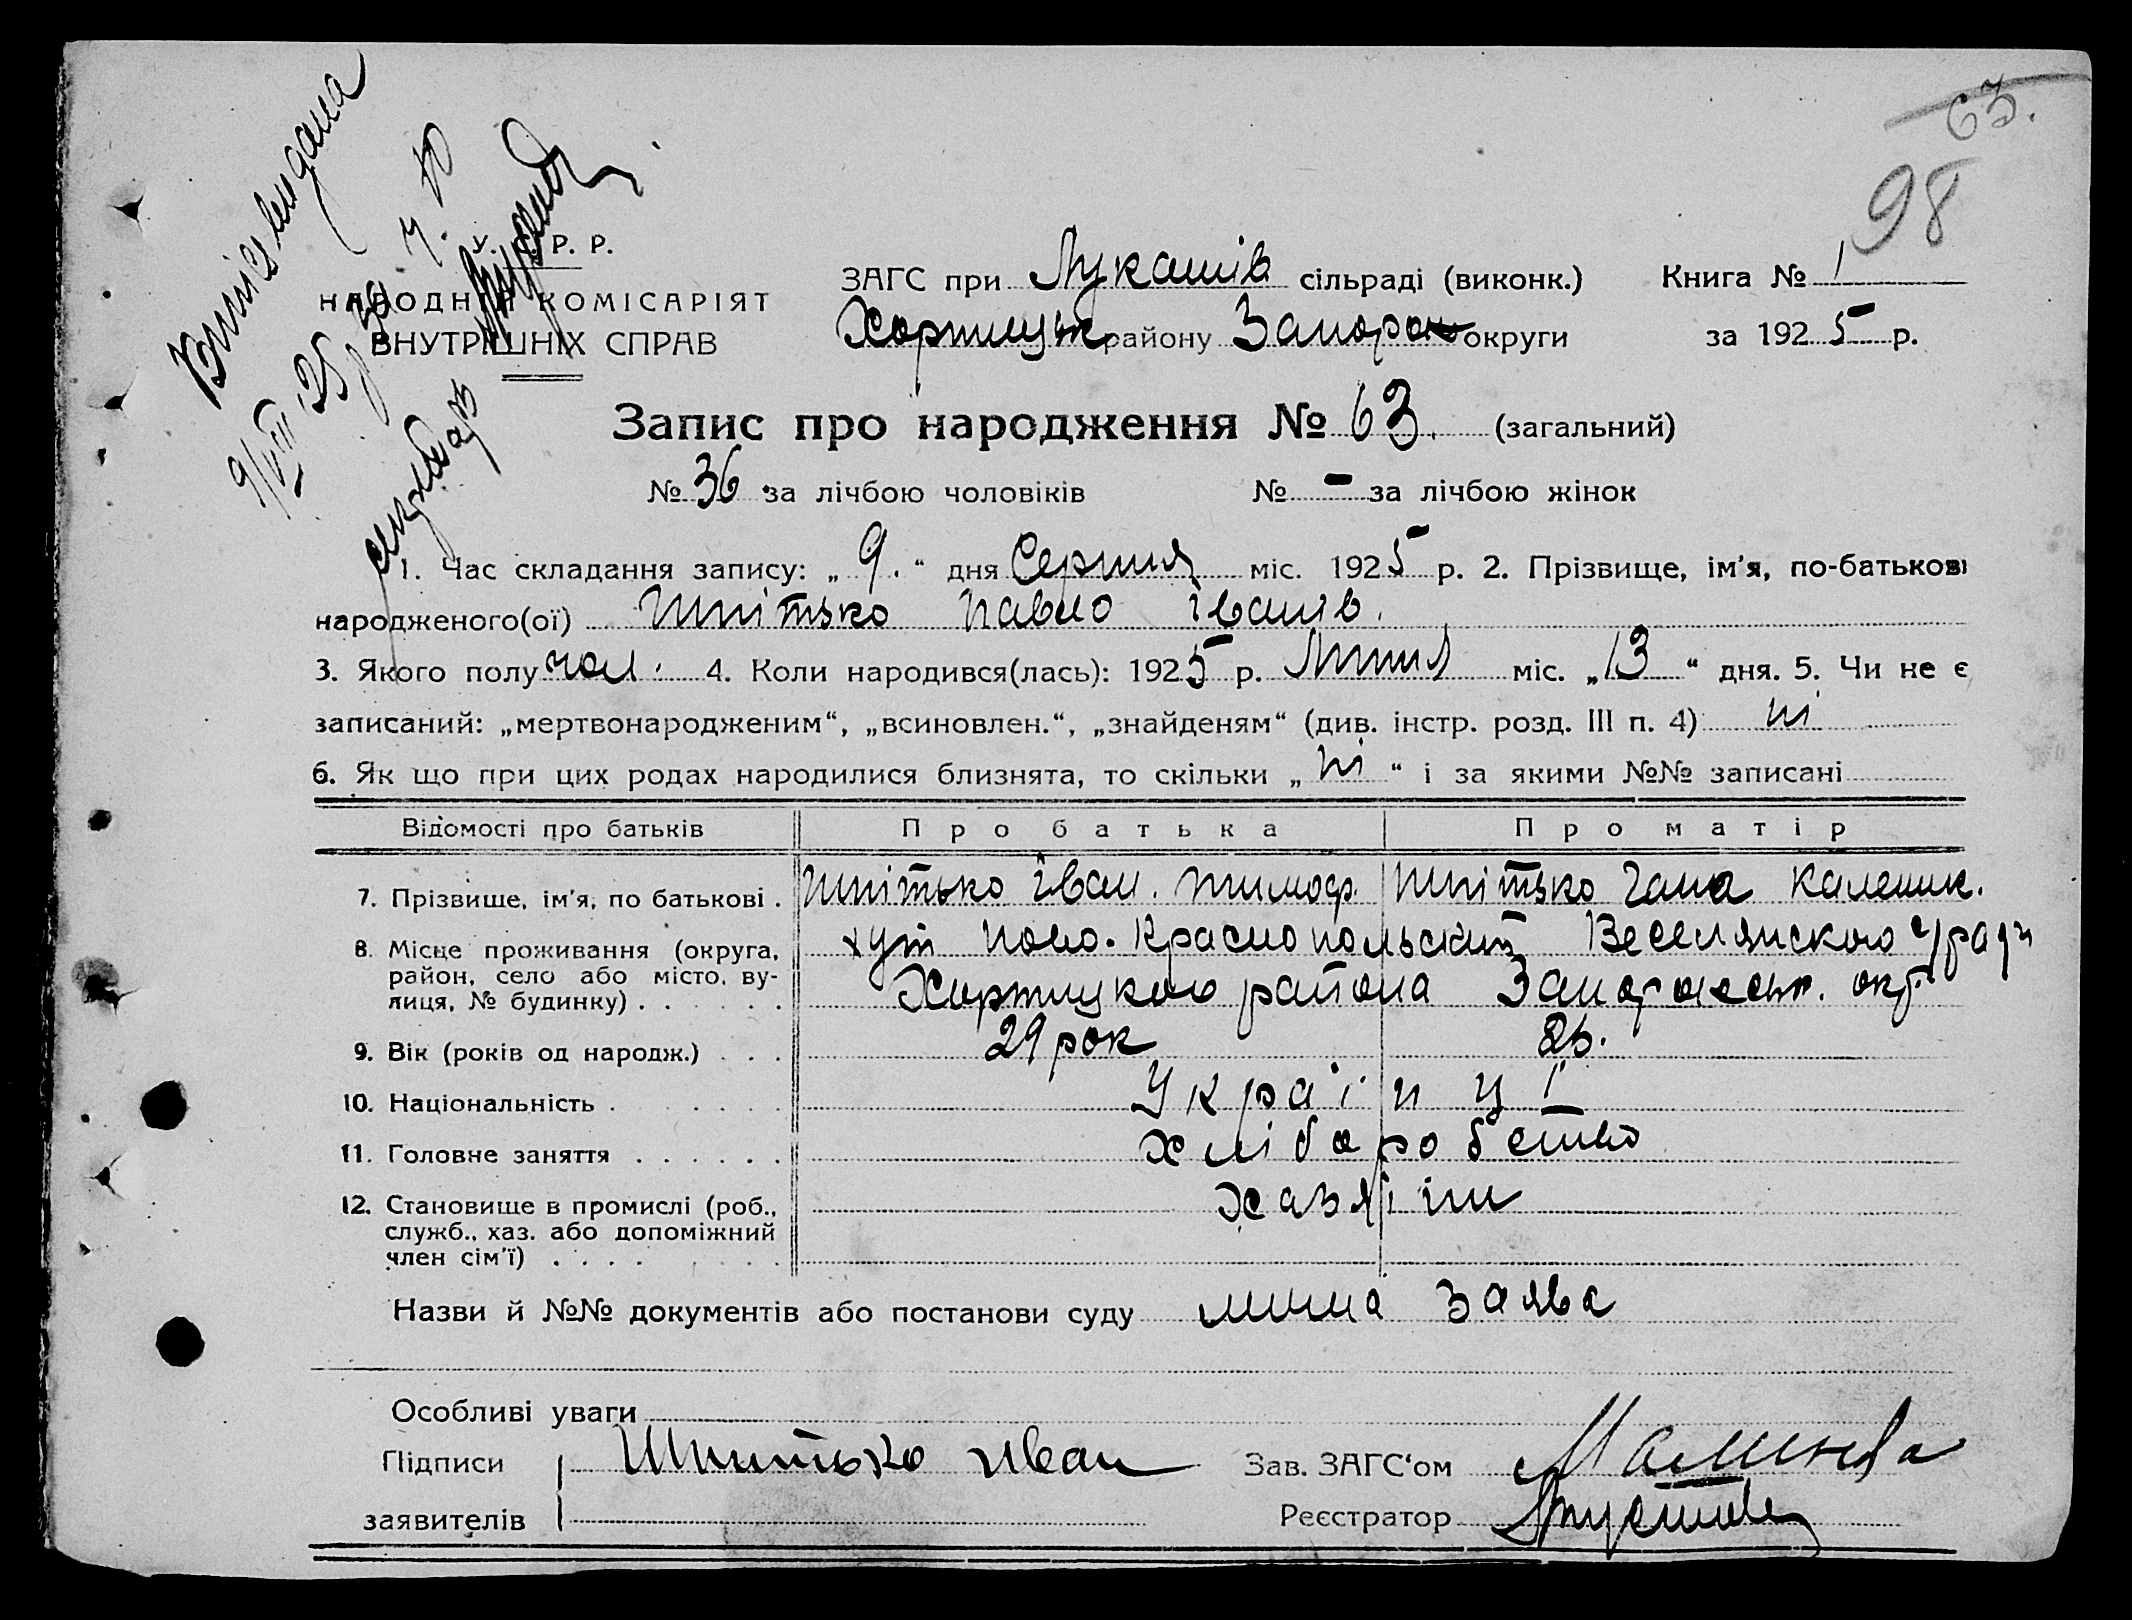 63.
98
Випись видана
9/VIII 25 р. за ч. 10
У. С. Р. Р.
НАРОДНІЙ КОМІСАРІЯТ
ВНУТРІШНІХ СПРАВ
ЗАГС при Лукашів сільраді (виконк.) Книга № 1
Хортицьк району Запорож округи за 1925 р.
Запис про народження № 63. (загальний)
№ 36 за лічбою чоловіків № – за лічбою жінок
1. Час складання запису: „ 9. “ дня Серпня міс. 1925 р. 2. Прізвище, ім'я, по-батькові
народженого(ої) Шпітько Павло Іванів.
3. Якого полу чол. 4. Коли народився(лась): 1925 р. Липня міс. „ 13 “ дня. 5. Чи не є
записаний: „мертвонародженим“, „всиновлен.“, „знайденям“ (див. інстр. розд. III п. 4) ні
6. Як що при цих родах народилися близнята, то скільки „ ні “ і за якими №№ записані
Відомості про батьків Про батька Про матір
7. Прізвище, ім'я, по батькові . Шпітько Іван. Тимоф. Шпітько Гана Каленик.
8. Місце проживання (округа, хут Ново-Краснопольский Веселянского с/ради
район, село або місто, ву-
лиця, № будинку) . . . . . . Хортицкого района Запорожськ. окр.
9. Вік (років од народж.) . . . 29 рок 25.
10. Національність . . . . . . . Українці
11. Головне заняття . . . . . . Хліборобство
12. Становище в промислі (роб., хазяїни
служб., хаз. або допоміжний
член сім'ї) . . . . . . . .
Назви й №№ документів або постанови суду лична заява
Особливі уваги
Підписи Шпитько Иван Зав. ЗАГС'ом
заявителів Реєстратор